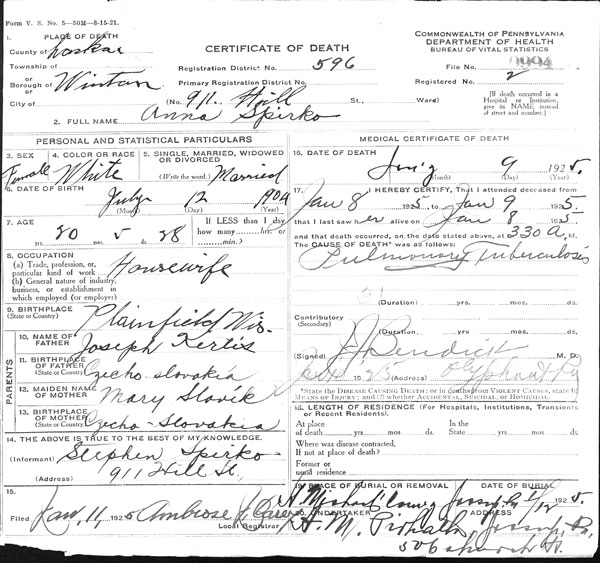 Form V. S. No. 5—50M—8-15-21.
1. PLACE OF DEATH
County of
Township of
or
Borough of Winton
City of
CERTIFICATE OF DEATH
Registration District No. 596
Primary Registration District No.
(No. 911 Hill St., Ward)
COMMONWEALTH OF PENNSYLVANIA
DEPARTMENT OF HEALTH
BUREAU OF VITAL STATISTICS
File No.
Registered No. 2
(If death occurred in a Hospital or Institution, give its NAME, instead of street and number.)
2. FULL NAME Anna Spirko
PERSONAL AND STATISTICAL PARTICULARS
3. SEX Female
4. COLOR OR RACE White
5. SINGLE, MARRIED, WIDOWED OR DIVORCED (Write the word.) Married
6. DATE OF BIRTH July 12 1904
(Month) (Day) (Year)
7. AGE 20 yrs. 5 mos. 28 ds.
If LESS than 1 day how many hrs. or min.?
8. OCCUPATION
(a) Trade, profession, or, particular kind of work Housewife
(b) General nature of industry, business, or establishment in which employed (or employer)
9. BIRTHPLACE (State or Country) Plainfield Wis.
PARENTS
10. NAME OF FATHER Joseph Kertis
11. BIRTHPLACE OF FATHER (State or Country) Czecho-Slovakia
12. MAIDEN NAME OF MOTHER Mary Slovik
13. BIRTHPLACE OF MOTHER (State or Country) Czecho-Slovakia
14. THE ABOVE IS TRUE TO THE BEST OF MY KNOWLEDGE.
(Informant) Stephen Spirko
(Address) 911 Hill St.
15.
Filed Jan. 11 1925 Ambrose
Local Registrar
MEDICAL CERTIFICATE OF DEATH
16. DATE OF DEATH 9 1925.
(Month) (Day) (Year)
17. I HEREBY CERTIFY, That I attended deceased from
Jan 8 1925 to Jan 9 1925.
that I last saw her alive on Jan 8 1925.
and that death occurred, on the date stated above, at 330 A. M.
The CAUSE OF DEATH* was as follows:
Pulmonary Tuberculosis
(Duration) yrs. mos. ds.
Contributory
(Secondary)
(Duration) yrs. mos. ds.
(Signed) Bendick M. D.
(Address) Olyphant Pa
*State the DISEASE CAUSING DEATH; or in deaths from VIOLENT CAUSES, state (1) MEANS OF INJURY; and (2) whether ACCIDENTAL, SUICIDAL, or HOMICIDAL.
18. LENGTH OF RESIDENCE (For Hospitals, Institutions, Transients or Recent Residents).
At place of death yrs. mos. ds. In the State yrs. mos. ds.
Where was disease contracted,
If not at place of death?
Former or
usual residence
19. PLACE OF BURIAL OR REMOVAL
DATE OF BURIAL
1/12 1925.
20. UNDERTAKER
ADDRESS
Jessup, Pa.
506 Church St.